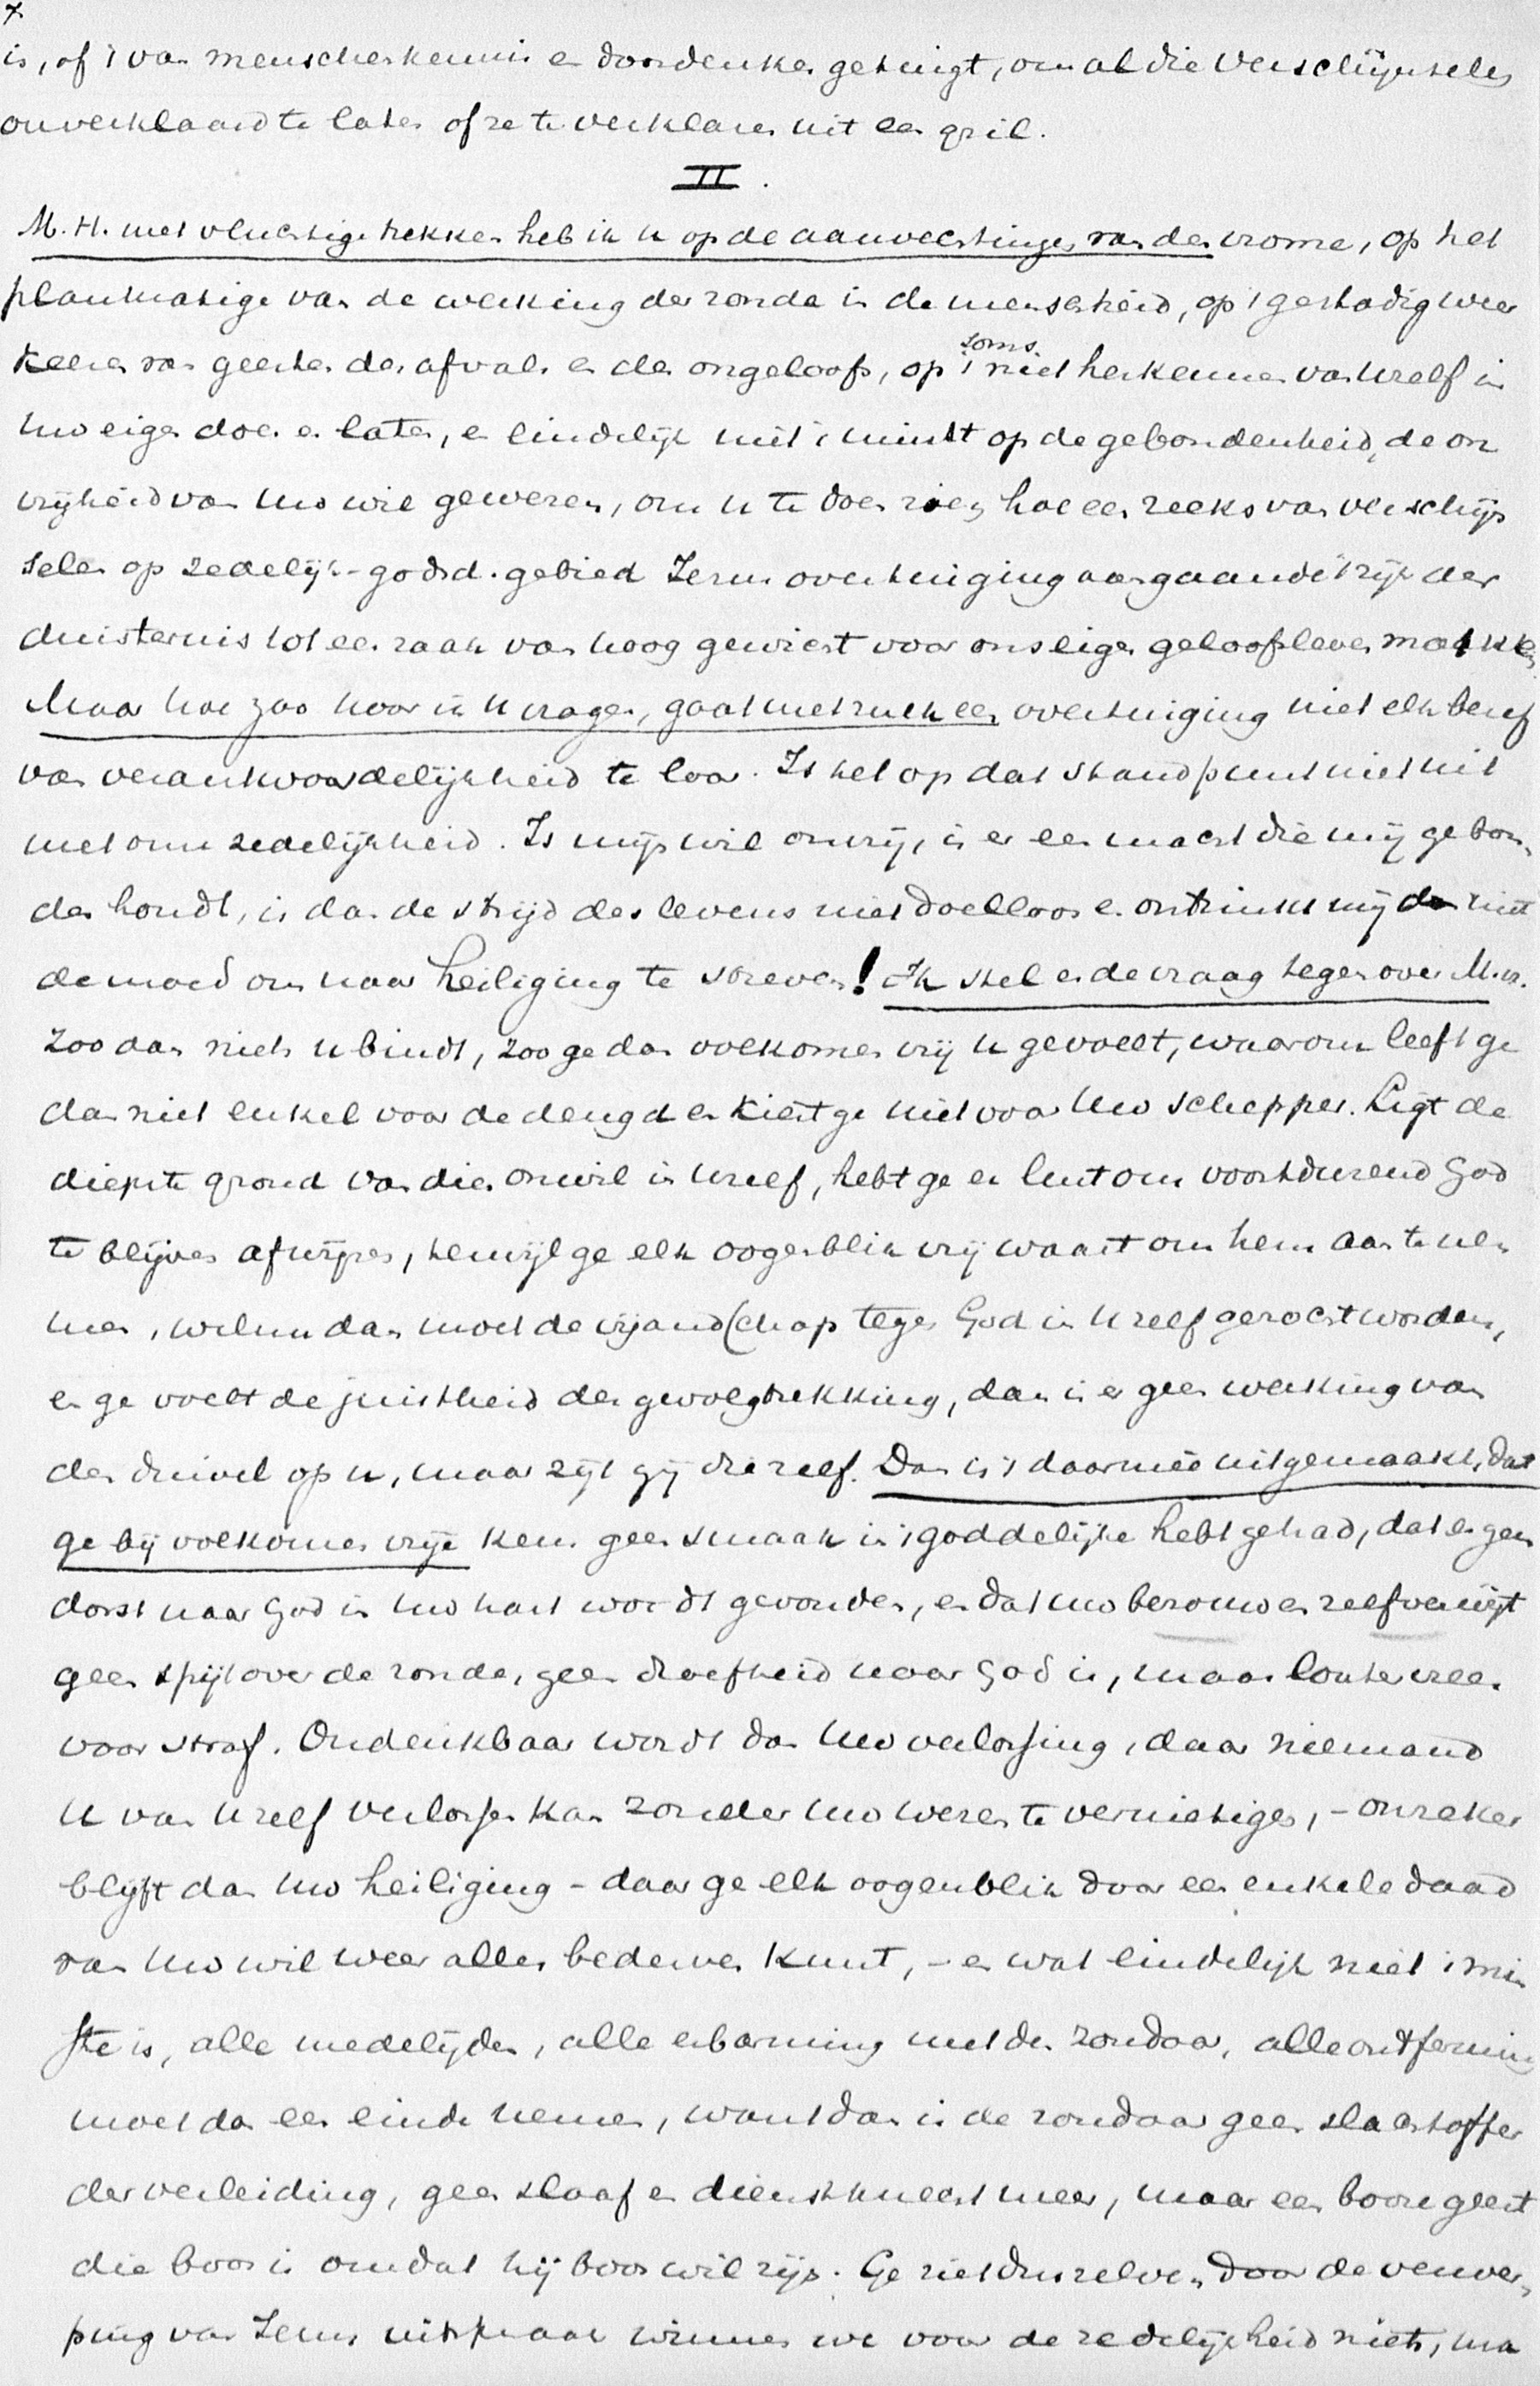 7
is, of 't van menschenkennis en doordenken getuigt, om al die verschijnselen
onverklaard te laten of ze te verklaren uit een gril.
II.
M.H. met vluchtige trekken heb ik u op de aanvechtingen van den vrome, op het
planmatige van de werking der zonde in de menschheid, op 't gestadig weer
keeren van geesten des afvals en des ongeloofs, op 't soms niet herkennen van Uzelf in
Uw eigen doen en laten, en eindelijk niet 't minst op de gebondenheid, de on
vrijheid van Uw wil gewezen, om U te doen zien, hoe een reeks van verschijn
selen op zedelijk-godsd. gebied Jezus overtuiging aangaande 't rijk der
duisternis tot een zaak van hoog gewicht voor ons eigen geloofsleven maken
Maar hoe zoo hoor ik U vragen, gaat met zulk een overtuiging niet elk besef
van verantwoordelijkheid te loor. Is het op dat standpunt niet uit
met onze zedelijkheid. Is mijn wil onvrij, is er een macht die mij gebon-
den houdt, is dan de strijd des levens niet doelloos en ontzinkt mij dan niet
de moed om naar heiliging te streven! Ik stel er de vraag tegenover M.H.
Zoo dan niets U bindt, zoo ge dan volkomen vrij U gevoelt, waarom leeft ge
dan niet enkel voor de deugd en kiest ge niet voor Uw schepper. Ligt de
diepste grond van dien onwil in Uzelf, hebt ge er lust om voortdurend God
te blijven afwijzen, terwijl ge elk oogenblik vrij waart om hem aan te ne-
men, welnu dan moet de vijandschap tegen God in Uzelf gezocht worden,
en ge voelt de juistheid der gevolgtrekking, dan is er geen werking van
den duivel op U, maar zijt gij die zelf. Dan is 't daarmeê uitgemaakt, dat
ge bij volkomen vrije keus geen smaak in 't goddelijke hebt gehad, dat er geen
dorst naar God in Uw hart wordt gevonden, en dat Uw berouw en zelfverwijt
geen spijt over de zonde, geen droefheid naar God is, maar louter vrees
voor straf. Ondenkbaar wordt dan Uw verlossing, daar niemand
U van Uzelf verlossen kan zonder Uw wezen te vernietigen, - onzeker
blijft dan Uw heiliging - daar ge elk oogenblik door een enkele daad
van Uw wil weer alles bederven kunt, - en wat eindelijk niet 't min
ste is, alle medelijden, alle erbarming met den zondaar, alle ontferming
moet dan een einde nemen, want dan is de zondaar geen slachtoffer
der verleiding, geen slaaf en dienstknecht meer, maar een booze geest
die boos is omdat hij boos wil zijn. Ge ziet dus zelven door de verwer-
ping van Jezus uitspraak winnen we voor de zedelijkheid niets, ma